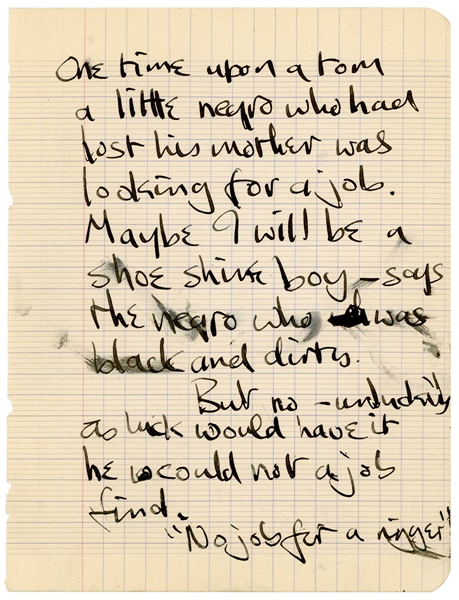 One time upon a tom
a little negro who had
lost his mother was
looking for a job.
Maybe I will be a
shoe shine boy – says
the negro who was
black and dirty.
But no – unluckily
as luck would have it
he could not a job
find.
"No job for a nigger"